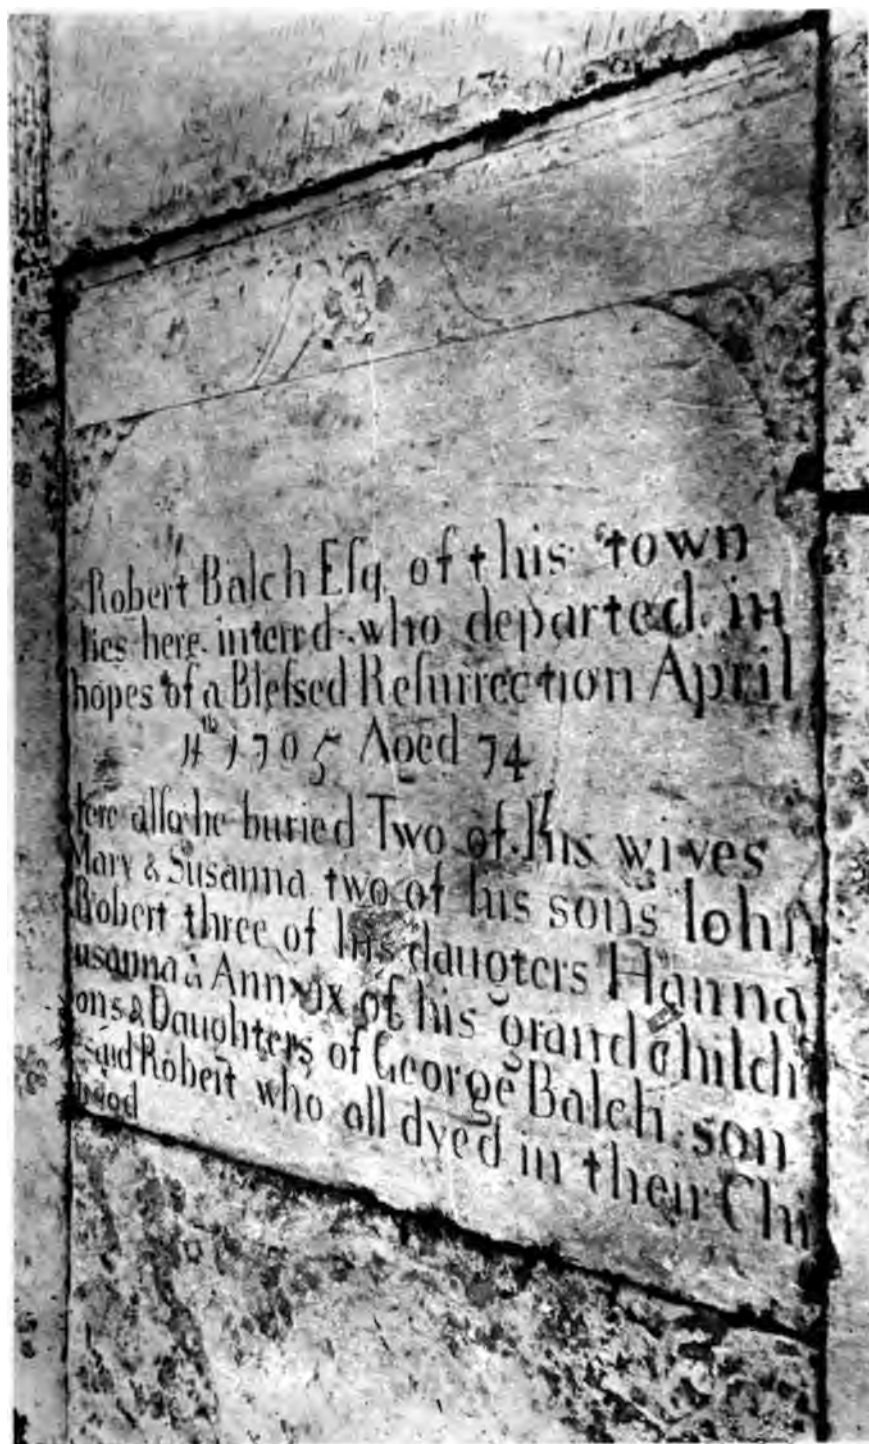 Robert Balch Eſq. of this town
lies here interrd who departed in
hopes of a Bleſsed Reſurrection April
1705 Aged 74
here alſo lie buried Two of his wives
Mary & Susanna two of his sons Iohn
Robert three of his daugters Hanna
usanna & Ann six of his grand Childr
ons & Daughters of George Balch son
said Robert who all dyed in their Chi
hood